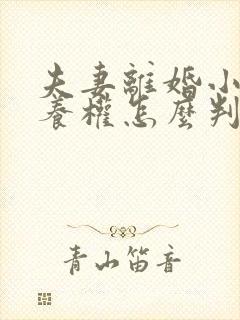 夫妻離婚小
養權怎麼判
青山笛音